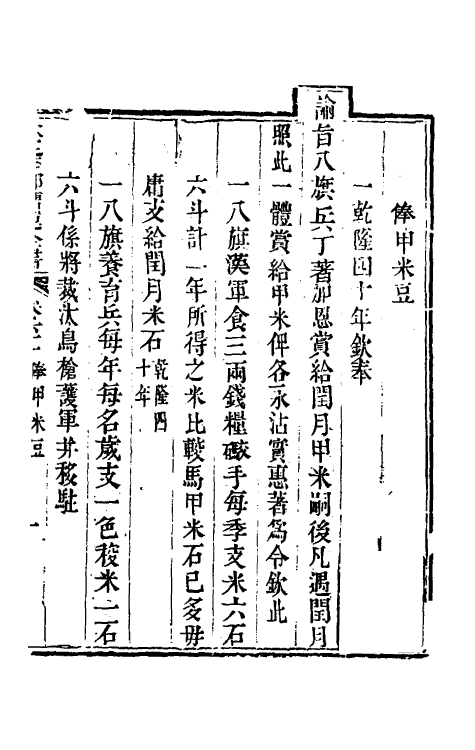 俸甲米豆
一乾隆四十年欽奉
諭旨八旗兵丁著加恩賞給閏月甲米嗣後凡遇閏月
照此一體賞給甲米俾各永沾實惠著為令欽此
一八旗漢軍食三兩錢糧礟手每季支米六石
六斗計一年所得之米比較馬甲米石已多毋
庸支給閏月米石乾隆四十年
一八旗養育兵每年每名歲支一色稄米一石
六斗係將裁汰鳥槍護軍并移駐
卷六十一 俸甲米豆 一